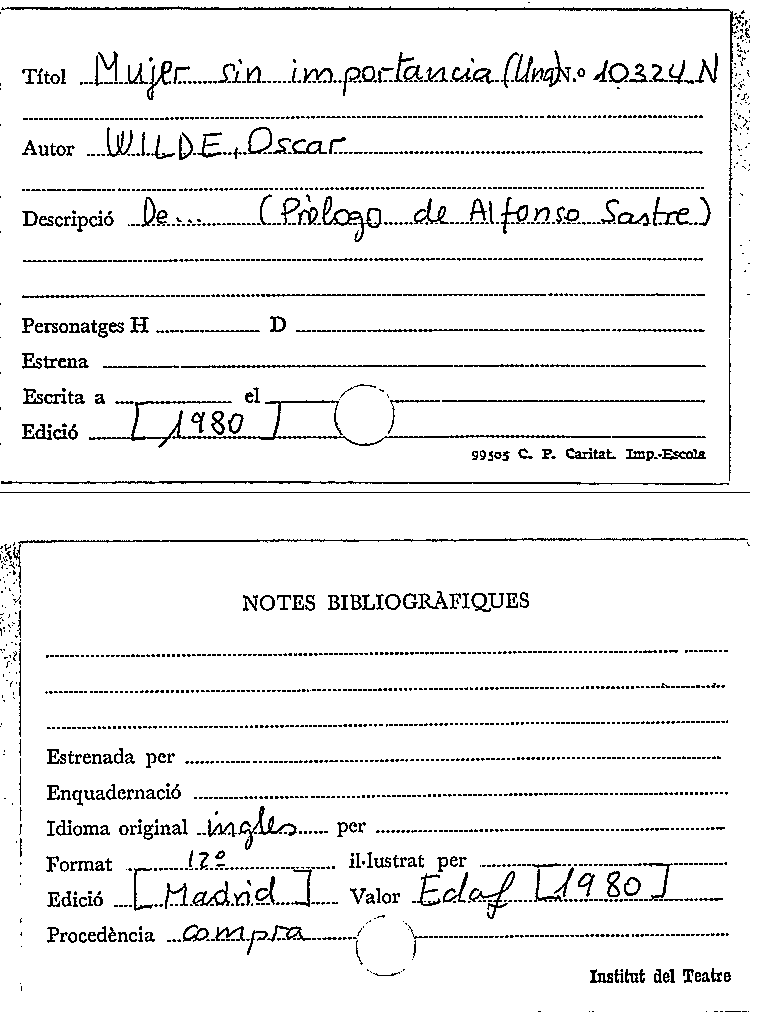 Títol Mujer sin importancia (Una) N.º 10324 N
Autor WILDE, Oscar
Descripció De... (Pròlogo de Alfonso Sastre)
Personatges H D
Estrena
Escrita a el
Edició [1980]
99505 C. P. Caritat. Imp.-Escola
NOTES BIBLIOGRÀFIQUES
Estrenada per
Enquadernació
Idioma original ingles per
Format 12º il·lustrat per
Edició [Madrid] Valor Edaf [1980]
Procedència compra
Institut del Teatre